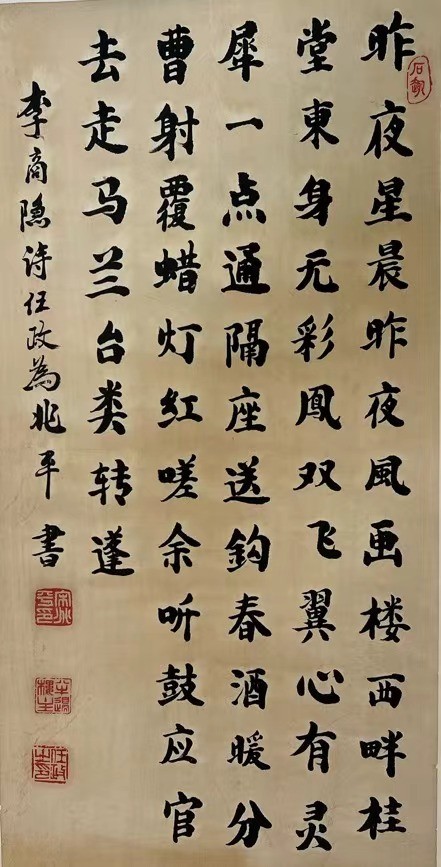 昨夜星晨昨夜風画楼西畔桂
堂東身无彩鳳双飞翼心有灵
犀一点通隔座送鈎春酒暖分
曹射覆蜡灯红嗟余听鼓应官
去走马兰台类转蓬
李商隐诗任政為兆平書
任政之印